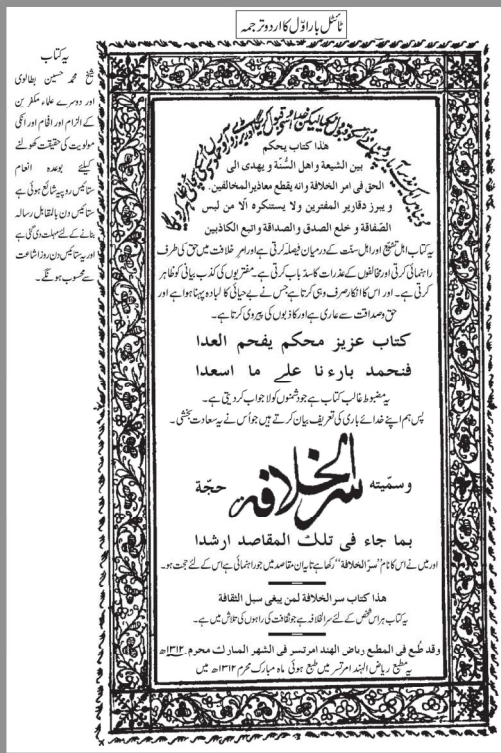 ٹائٹل بار اوّل کا اردو ترجمہ
یہ کتاب
شیخ محمد حسین بطالوی
اور دوسرے علماء مکفرین
کے الزام اور افحام اور انکی
مولویت کی حقیقت کھولنے
کیلئے بوعدہ انعام
ستائیس روپیہ شائع ہوئی ہے
ستائیس دن بالمقابل رسالہ
بنانے کے لئے مہلت دی گئی ہے
اور یہ ستائیس دن روز اشاعت
سے محسوب ہونگے۔
دُنیا میں ایک نذیر آیا پر دُنیا نے اسے قبول نہ کیا لیکن خدا اسے قبول کریگا اور بڑے زور آور حملوں سے اُسکی سچائی ظاہر کر دیگا
هذا كتاب يحكم
بين الشيعة واهل السُّنة و يهدى الى
الحق فى امر الخلافة وانه يقطع معاذير المخالفين.
و يبرز دقارير المفترين ولا يستنكره الّا من لبس
الصّفاقة و خلع الصدق و الصداقة واتبع الكاذبين
یہ کتاب اہل تشیع اور اہل سنت کے درمیان فیصلہ کرتی ہے اور امر خلافت میں حق کی طرف
راہنمائی کرتی اور مخالفوں کے عذرات کا سدّ باب کرتی ہے۔ مفتریوں کی کذب بیانی کو ظاہر
کرتی ہے۔ اور اس کا انکار صرف وہی کرتا ہے جس نے بے حیائی کا لبادہ پہنا ہوا ہے اور
حق و صداقت سے عاری ہے اور کاذبوں کی پیروی کرتا ہے۔
كتاب عزيز محكم يفحم العدا
فنحمد بارءنا علے ما اسعدا
یہ مضبوط غالب کتاب ہے جو دشمنوں کو لاجواب کر دیتی ہے۔
پس ہم اپنے خدائے باری کی تعریف بیان کرتے ہیں جو اُس نے یہ سعادت بخشی۔
وسمّيته سر الخلافة حجّة
بما جاء فى تلك المقاصد ارشدا
اور میں نے اس کا نام ”سرّ الخلافة“ رکھا ہے تا یہ ان مقاصد میں جو راہنمائی ہے اس کے لئے حجت ہو۔
هذا كتاب سر الخلافة لمن يبغى سبل الثقافة
یہ کتاب ہر اس شخص کے لئے سر الخلافہ ہے جو ثقافت کی راہوں کی تلاش میں ہے۔
وقد طُبع فى المطبع رياض الهند امرتسر فى الشهر المبارك محرم ۱۳۱۲ھ
یہ مطبع ریاض الہند امرتسر میں طبع ہوئی ماہ مبارک محرم ۱۳۱۲ھ میں